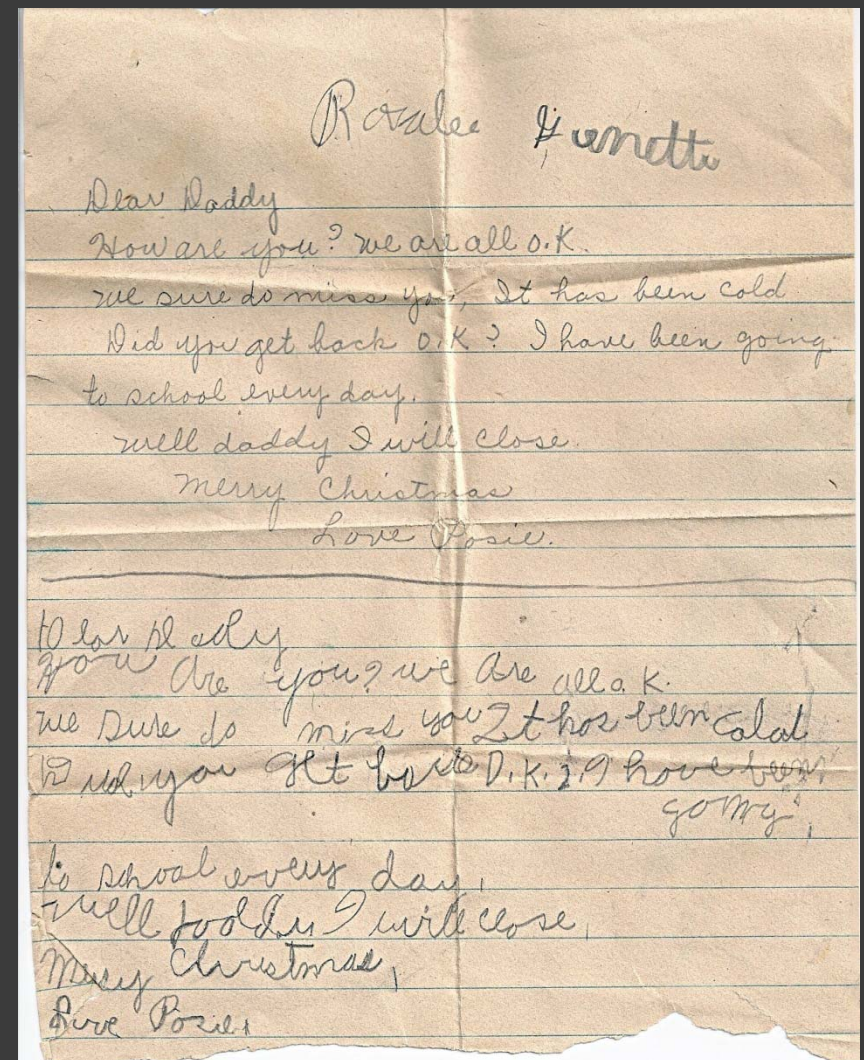 Rosalee
Dear Daddy
How are you? we are all O.K.
we sure do miss you, It has been cold
Did you get back O.K? I have been going
to school every day.
well daddy I will close
Merry Christmas
Love Posie.
Dear Dady
How Are you? we Are all o K.
we sure do miss you It has been cold
Did you get back O.K.? I have been
going,
to school every day,
well daddy I will close,
Merry Christmas,
Love Posie,